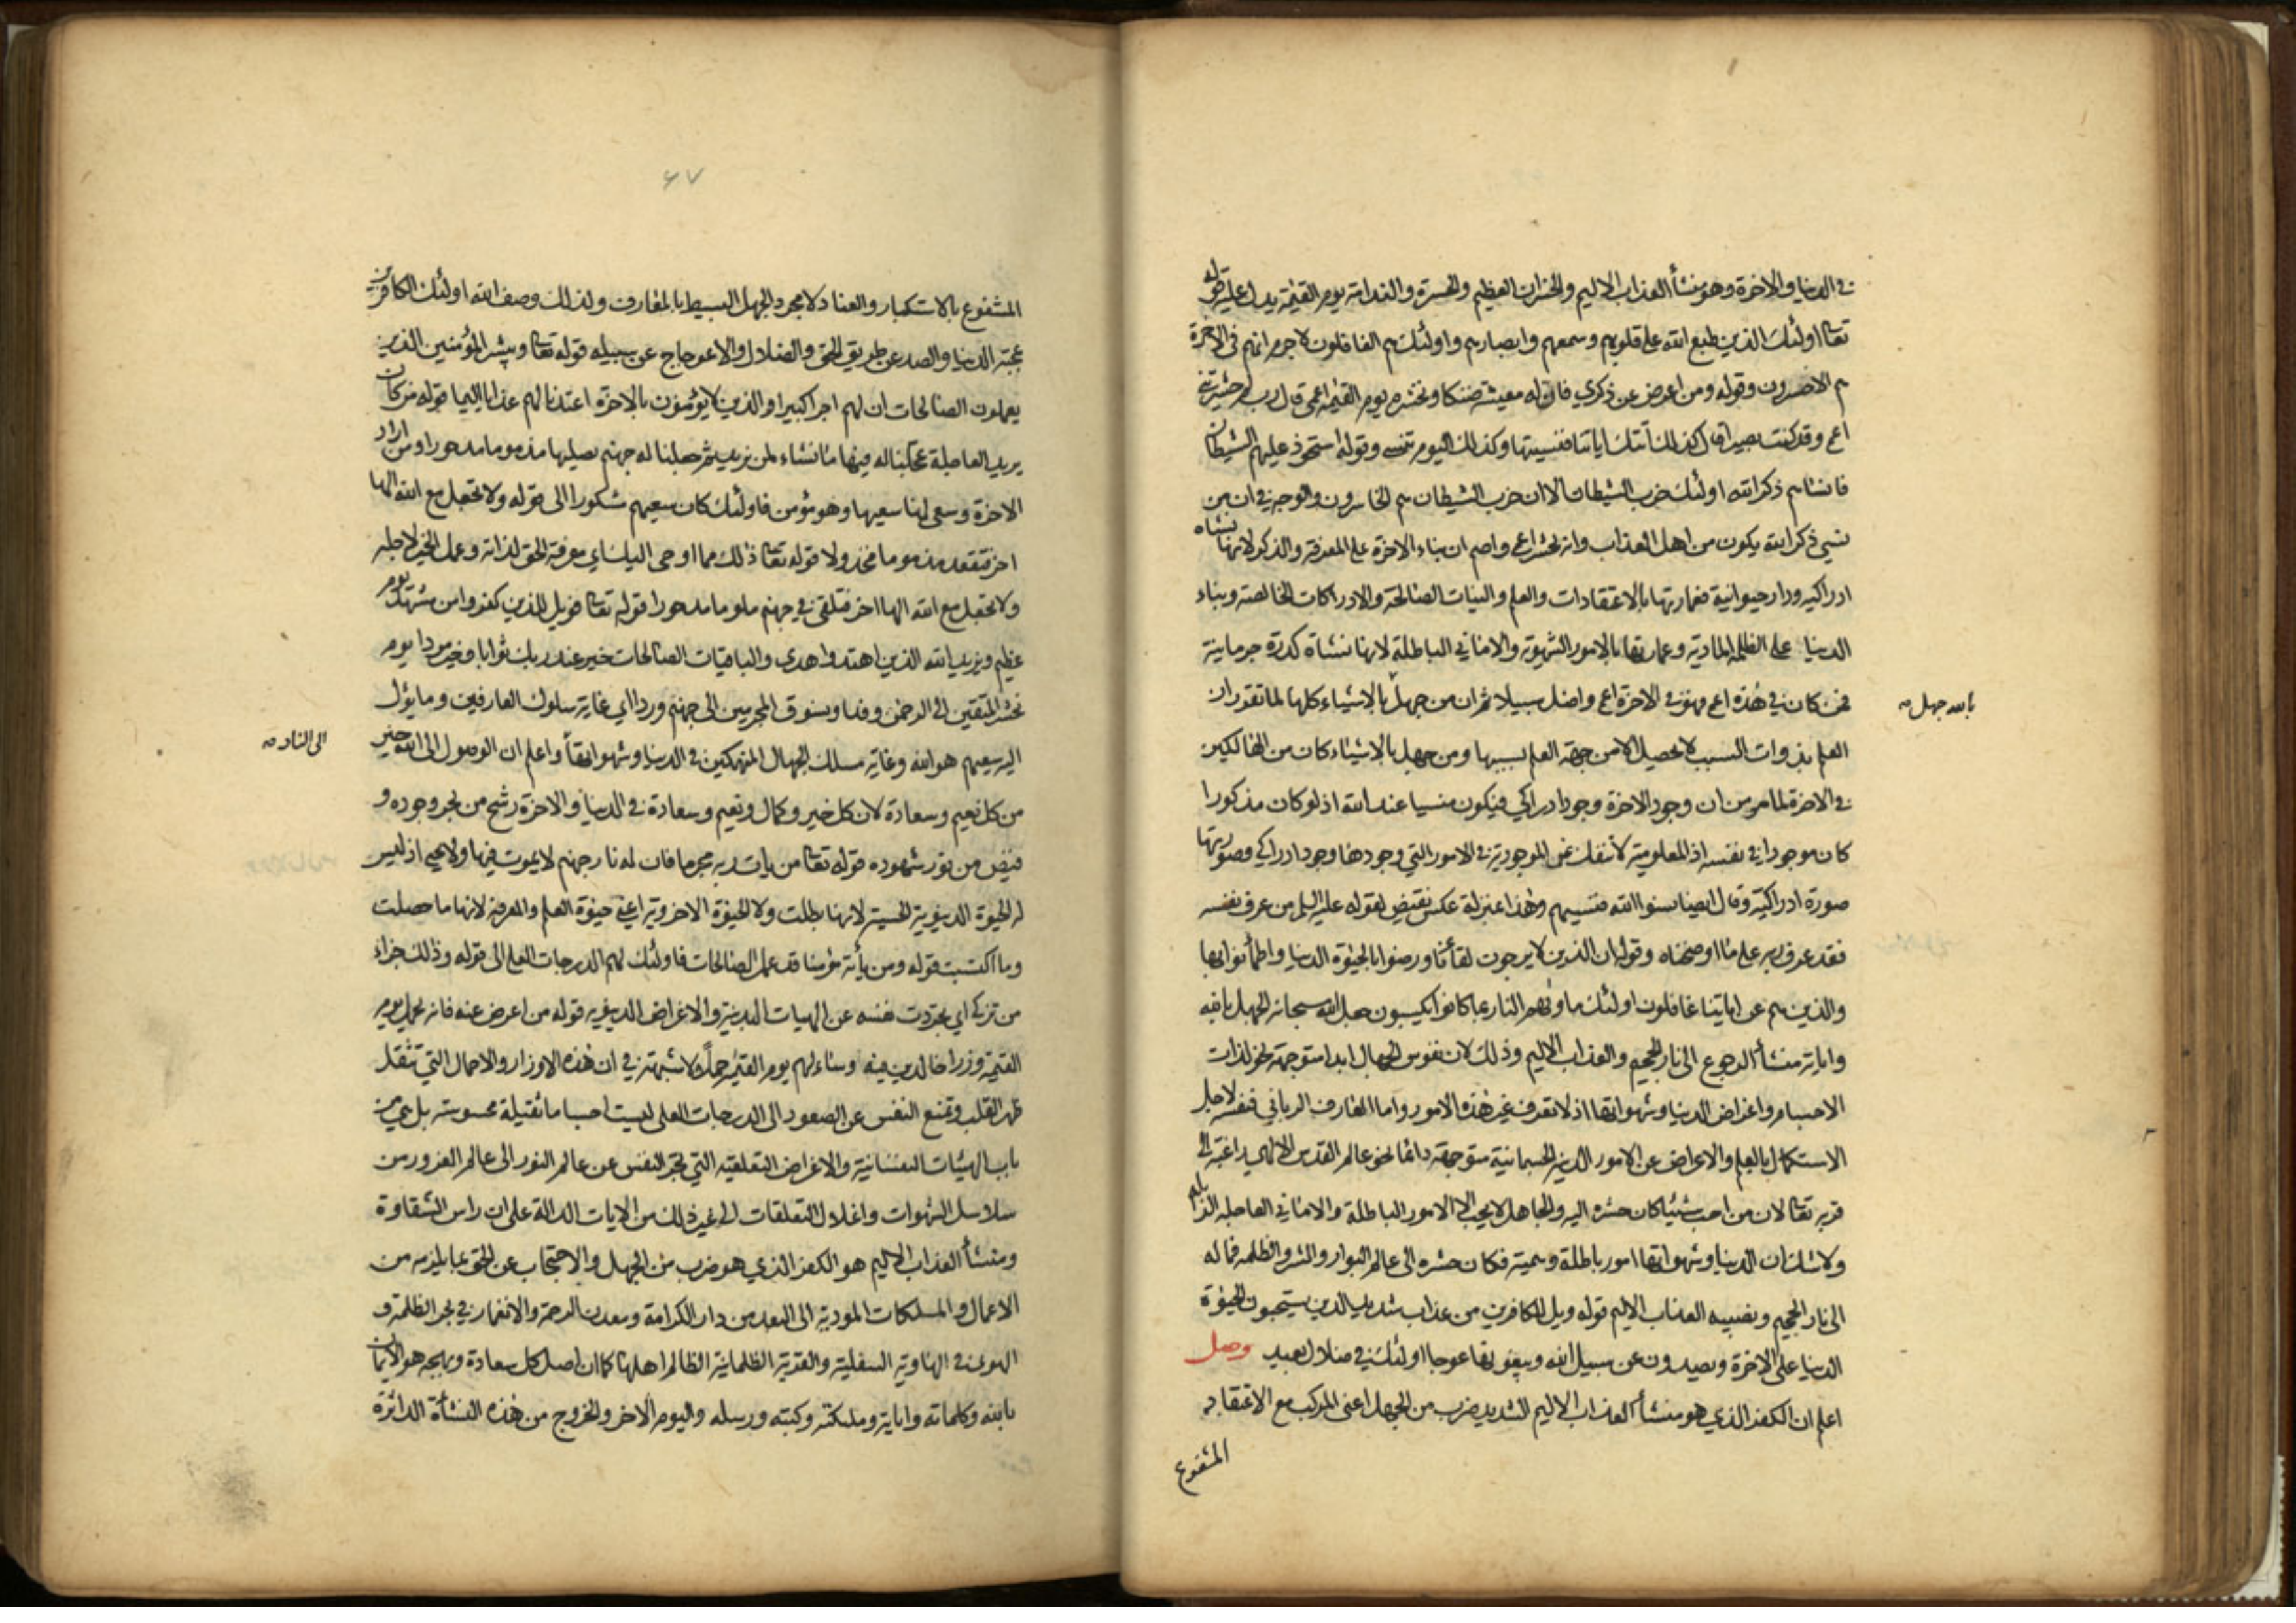 في الدنيا والاخرة وهو منشأ العذاب الاليم والخسران العظيم والحسرة والندامة يوم القيٰمة يدل عليه قوله
تعالى اولئك الذين طبع الله على قلوبهم وسمعهم وابصارهم واولئك هم الغافلون لا جرم انهم في الاخرة
هم الاخسرون وقوله ومن اعرض عن ذكري فان له معيشة ضنكا ونحشره يوم القيٰمة اعمى قال رب لم حشرتني
اعمى وقد كنت بصيرا قال كذلك أتتك اياتنا فنسيتها وكذلك اليوم تنسى وقوله استحوذ عليهم الشيطان
فانساهم ذكر الله اولئك حزب الشيطان الا ان حزب الشيطان هم الخاسرون والوجه في ان من
نسي ذكر الله يكون من اهل العذاب وانه يحشر اعمى واصم ان بناء الاخرة على المعرفة والذكر لانها نشاه
ادراكيه ودار حيوانية فعمارتها بالاعتقادات والعلم والنيات الصالحة والادراكات الخالصة وبناء
الدنيا على الظلمه المادية وعمارتها بالامور الشهوية والاماني الباطلة لانها نشاة كدرة جرمانية
فمن كان في هذه اعمى فهو في الاخرة اعمى واضل سبيلا ثم ان من جهل بالاشياء كلها لما تقرر ان
بالله جهل صح
العلم بذوات السبب لا يحصل الا من جهة العلم بسببها ومن جهل بالاشياء كان من الهالكين
في الاخرة لما مر من ان وجود الاخرة وجود ادراكي فيكون منسيا عند الله اذ لو كان مذكورا
كان موجودا في نفسه اذ المعلومية لا تنفك عن الموجودية في الامور التي وجودها وجود ادراكي وصورتها
صورة ادراكية وقال ايضا نسوا الله فنسيهم وهذا بمنزلة عكس نقيض لقوله عليه السلم من عرف نفسه
فقد عرف ربه على ما اوضحناه وقوله ان الذين لا يرجون لقاءنا ورضوا بالحيٰوة الدنيا واطمأنوا بها
والذين هم عن اياتنا غافلون اولئك ماويٰهم النار بما كانوا يكسبون جعل الله سبحانه الجهل بالله
واياته منشأ الرجوع الى نار الجحيم والعذاب الاليم وذلك لان نفوس الجهال ابدا متوجهة نحو لذات
الاجسام واغراض الدنيا وشهواتها اذ لا تعرف غير هذه الامور واما العارف الرباني فنفسه لاجل
الاستكمال بالعلم والاعراض عن الامور الدنيه الجسمانية متوجهة دائما نحو عالم القدس الالهي راغبة الى
قربه تعالى لان من احب شيئا كان حشره اليه والجاهل لا يحب الا الامور الباطلة والاماني العاجله الزائله
ولا شك ان الدنيا وشهواتها امور باطلة وهمية فكان حشره الى عالم البوار والشر والظلمه فماله
الى نار الجحيم ونصيبه العذاب الاليم قوله وويل للكافرين من عذاب شديد الذين يستحبون الحيٰوة
الدنيا على الاخرة ويصدون عن سبيل الله ويبغونها عوجا اولئك في ضلال بعيد وصل
اعلم ان الكفر الذي هو منشأ العذاب الاليم الشديد ضرب من الجهل اعني المركب مع الاعتقاد
المشفوع
٤٧
المشفوع بالاستكبار والعناد لا مجرد الجهل البسيط بالمعارف ولذلك وصف الله اولئك الكافرين
بمحبة الدنيا والصد عن طريق الحق والضلال والاعوجاج عن سبيله قوله تعالى ويبشر المؤمنين الذين
يعملون الصالحات ان لهم اجرا كبيرا والذين لا يؤمنون بالاخرة اعتدنا لهم عذابا اليما قوله من كان
يريد العاجلة عجلنا له فيها ما نشاء لمن نريد ثم جعلنا له جهنم يصليها مذموما مدحورا ومن اراد
الاخرة وسعى لها سعيها وهو مؤمن فاولئك كان سعيهم مشكورا الى قوله ولا تجعل مع الله الها
اخر فتقعد مذموما مخذولا قوله تعالى ذلك مما اوحى اليك اي معرفة الحق لذاته وعمل الخير لاجله
ولا تجعل مع الله الها اخر فتلقى في جهنم ملوما مدحورا قوله تعالى فويل للذين كفروا من مشهد يوم
عظيم ويزيد الله الذين اهتدوا هدى والباقيات الصالحات خير عند ربك ثوابا وخير مردا يوم
نحشر المتقين الى الرحمٰن وفدا ونسوق المجرمين الى جهنم وردا اي غاية سلوك العارفين وما يؤل
اليه سعيهم هو الله وغاية مسلك الجهال المنهمكين في الدنيا وشهواتها واعلم ان الوصول الى الله خير
الى النار صح
من كل نعيم وسعادة لان كل خير وكمال ونعيم وسعادة في الدنيا والاخرة رشح من بحر وجوده و
فيض من نور شهوده قوله تعالى من يات ربه مجرما فان له نار جهنم لا يموت فيها ولا يحيى اذ ليس
له الحيٰوة الدنيوية الحسية لانها بطلت ولا الحيٰوة الاخروية اعني حيٰوة العلم والمعرفة لانها ما حصلت
وما اكتسبت قوله ومن يأته مؤمنا قد عمل الصالحات فاولئك لهم الدرجات العلى الى قوله وذلك جزاء
من تزكى اي تجردت نفسه عن الهيات البدنية والاغراض الدنيوية قوله من اعرض عنه فانه يحمل يوم
القيٰمة وزرا خالدين فيه وساء لهم يوم القيٰمة حملا لا شبهة في ان هذه الاوزار والاحمال التي تثقل
ظهر القلب وتمنع النفس عن الصعود الى الدرجات العلى ليست احساما ثقيلة محسوسة بل هي من
باب الهيئات النفسانية والاغراض التعلقيه التي تجر النفس عن عالم النور الى عالم الغرور من
سلاسل الشهوات واغلال التعلقات الى غير ذلك من الايات الدالة على ان راس الشقاوة
ومنشأ العذاب الاليم هو الكفر الذي هو ضرب من الجهل والاحتجاب عن الحق بما يلزمه من
الاعمال والملكات المودية الى البعد من دار الكرامة ومعدن الرحمة والانغمار في بحر الظلمة و
الهوى في الهاوية السفلية والقرية الظلمانية الظالم اهلها كما ان اصل كل سعادة وبهجة هو الايمان
بالله وكلماته واياته وملئكته وكتبه ورسله واليوم الاخر والخروج من هذه النشأة الداثرة